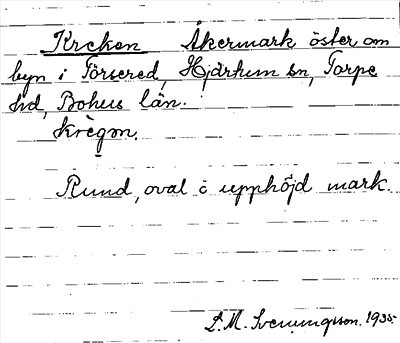 Kreken Åkermark öster om
byn i Törsered, Hjärtum sn, Torpe
hd, Bohus län.
krègən.
Rund, oval i upphöjd mark.
S. M. Svenungsson. 1935